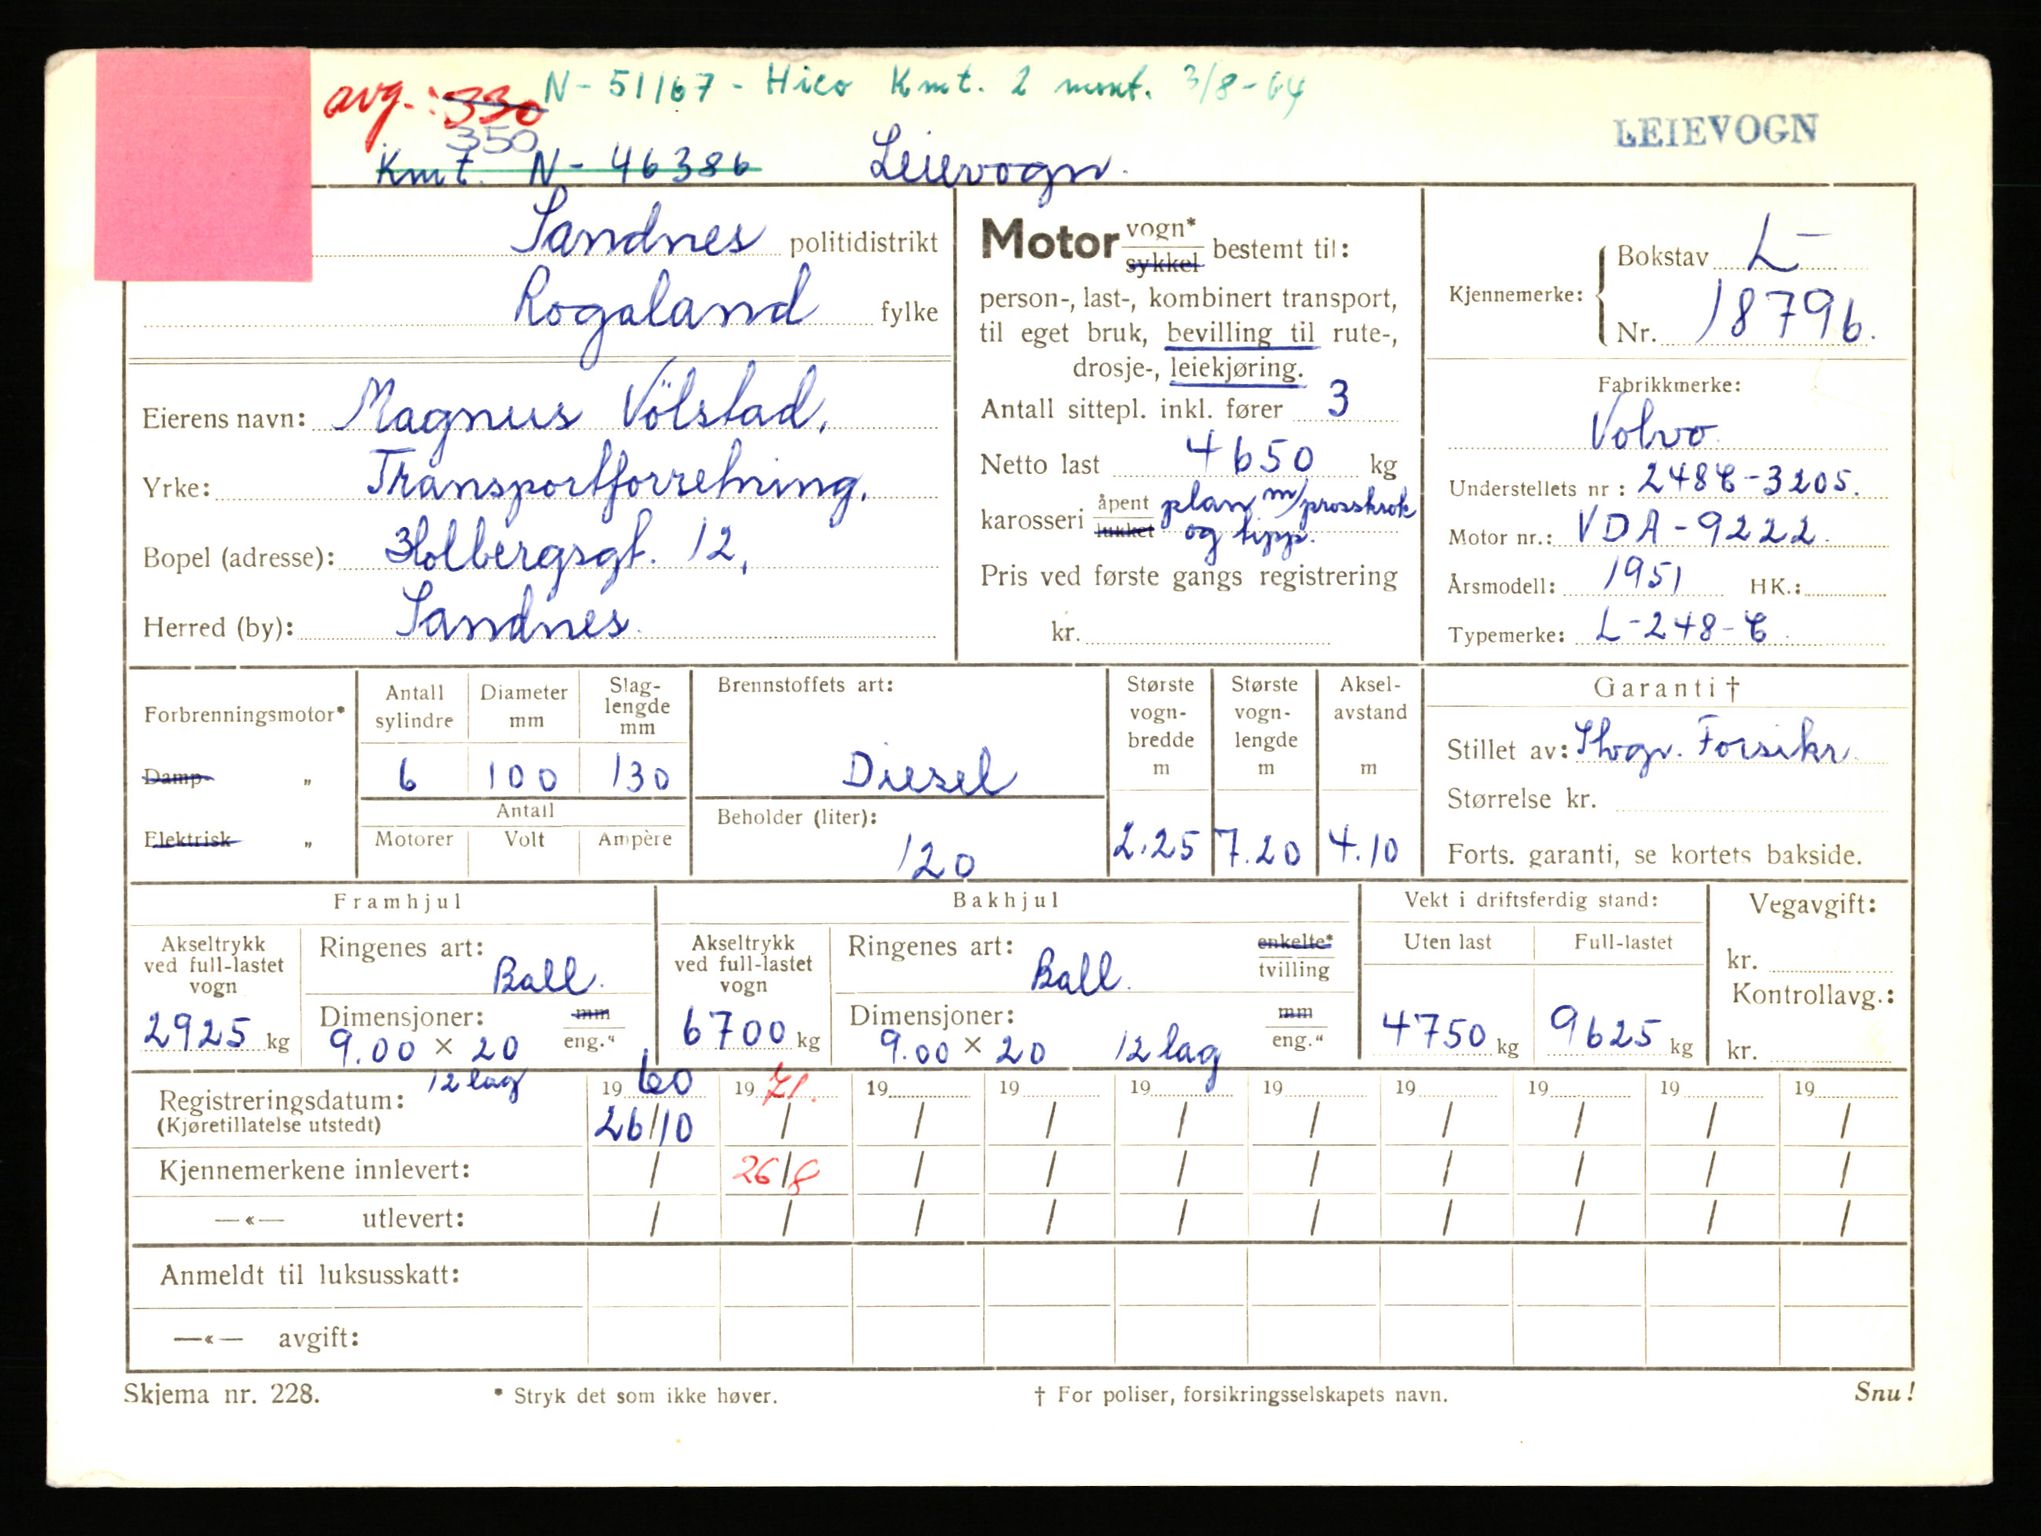 avg.: 330 N-51167 - Hico Kmt. 2 mont. 3/8-64
350
Kmt. N- 46386 Leievogn.
LEIEVOGN
Sandnes politidistrikt
Rogaland fylke
Eierens navn: Magnus Völstad,
Yrke: Transportforretning,
Bopel (adresse): Holbergsgt. 12,
Herred (by): Sandnes.
Motor vogn* sykkel bestemt til:
person-, last-, kombinert transport,
til eget bruk, bevilling til rute-,
drosje-, leiekjøring.
Antall sittepl. inkl. fører 3
Netto last 4650 kg
karosseri åpent lukket plan m/prosskrok
og tipp.
Pris ved første gangs registrering
kr.
Kjennemerke: Bokstav L-
Nr. 18796.
Fabrikkmerke:
Volvo
Understellets nr : 248C-3205.
Motor nr.: VDA-9222.
Årsmodell: 1951 HK.:
Typemerke: L-248-C.
Forbrenningsmotor*
Damp- „
Elektrisk „
Antall sylindre
Diameter mm
Slag-lengde mm
6 100 130
Antall
Motorer Volt Ampère
Brennstoffets art:
Diesel
Beholder (liter):
120
Største vogn-bredde m
2.25
Største vogn-lengde m
7.20
Aksel-avstand m
4.10
Garanti †
Stillet av: Thogr. Forsikr.
Størrelse kr.
Forts. garanti, se kortets bakside.
Framhjul
Akseltrykk
ved full-lastet
vogn
2925 kg
Ringenes art:
Ball.
Dimensjoner: mm
9.00 × 20 eng."
12 lag
Bakhjul
Akseltrykk
ved full-lastet
vogn
6700 kg
Ringenes art: enkelte*
Ball. tvilling
Dimensjoner: mm
9.00 × 20 12 lag eng."
Vekt i driftsferdig stand:
Uten last Full-lastet
4750 kg 9625 kg
Vegavgift:
kr.
Kontrollavg.:
kr.
Registreringsdatum: 19 60 19 71. 19 19 19 19 19 19 19 19
(Kjøretillatelse utstedt) 26/10 / / / / / / / / /
Kjennemerkene innlevert: / 26/8 / / / / / / / /
—«— utlevert: / / / / / / / / / /
Anmeldt til luksusskatt:
—«— avgift:
Skjema nr. 228. * Stryk det som ikke høver. † For poliser, forsikringsselskapets navn. Snu!